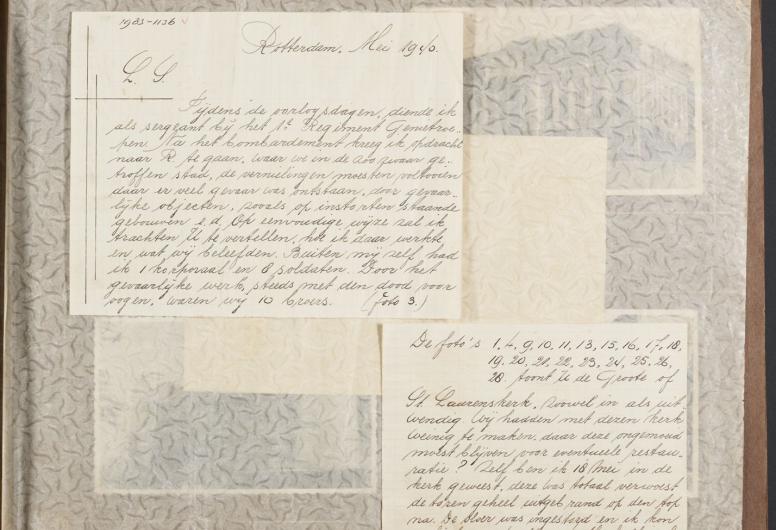 1983-1136
Rotterdam. Mei 1940.
L. S.
Tijdens de oorlogsdagen, diende ik
als sergeant bij het 1e Regiment Genietroe-
pen. Na het bombardement kreeg ik opdracht
naar R te gaan, waar we in de zoo zwaar ge-
troffen stad, de vernielingen moesten voltooien
daar er veel gevaar was ontstaan, door gevaar-
lijke objecten, zooals op instorten staande
gebouwen e.d. Op eenvoudige wijze zal ik
trachten, U te vertellen, hoe ik daar werkte
en wat wij beleefden. Buiten mij zelf had
ik 1 korporaal en 8 soldaten. Door het
gevaarlijke werk, steeds met den dood voor
oogen, waren wij 10 broers. (foto 3.)
De foto's 1, 4, 9, 10, 11, 13, 15, 16, 17, 18,
19, 20, 21, 22, 23, 24, 25, 26,
28. toont U de Groote of
St Laurenskerk, zoowel in als uit
wendig. Wij hadden met dezen kerk
weinig te maken, daar deze ongemoeid
moest blijven voor eventueele restau-
ratie? Zelf ben ik 18 Mei in de
kerk geweest, deze was totaal verwoest
de toren geheel uitgebrand op den top
na. De vloer was ingestord en ik kon